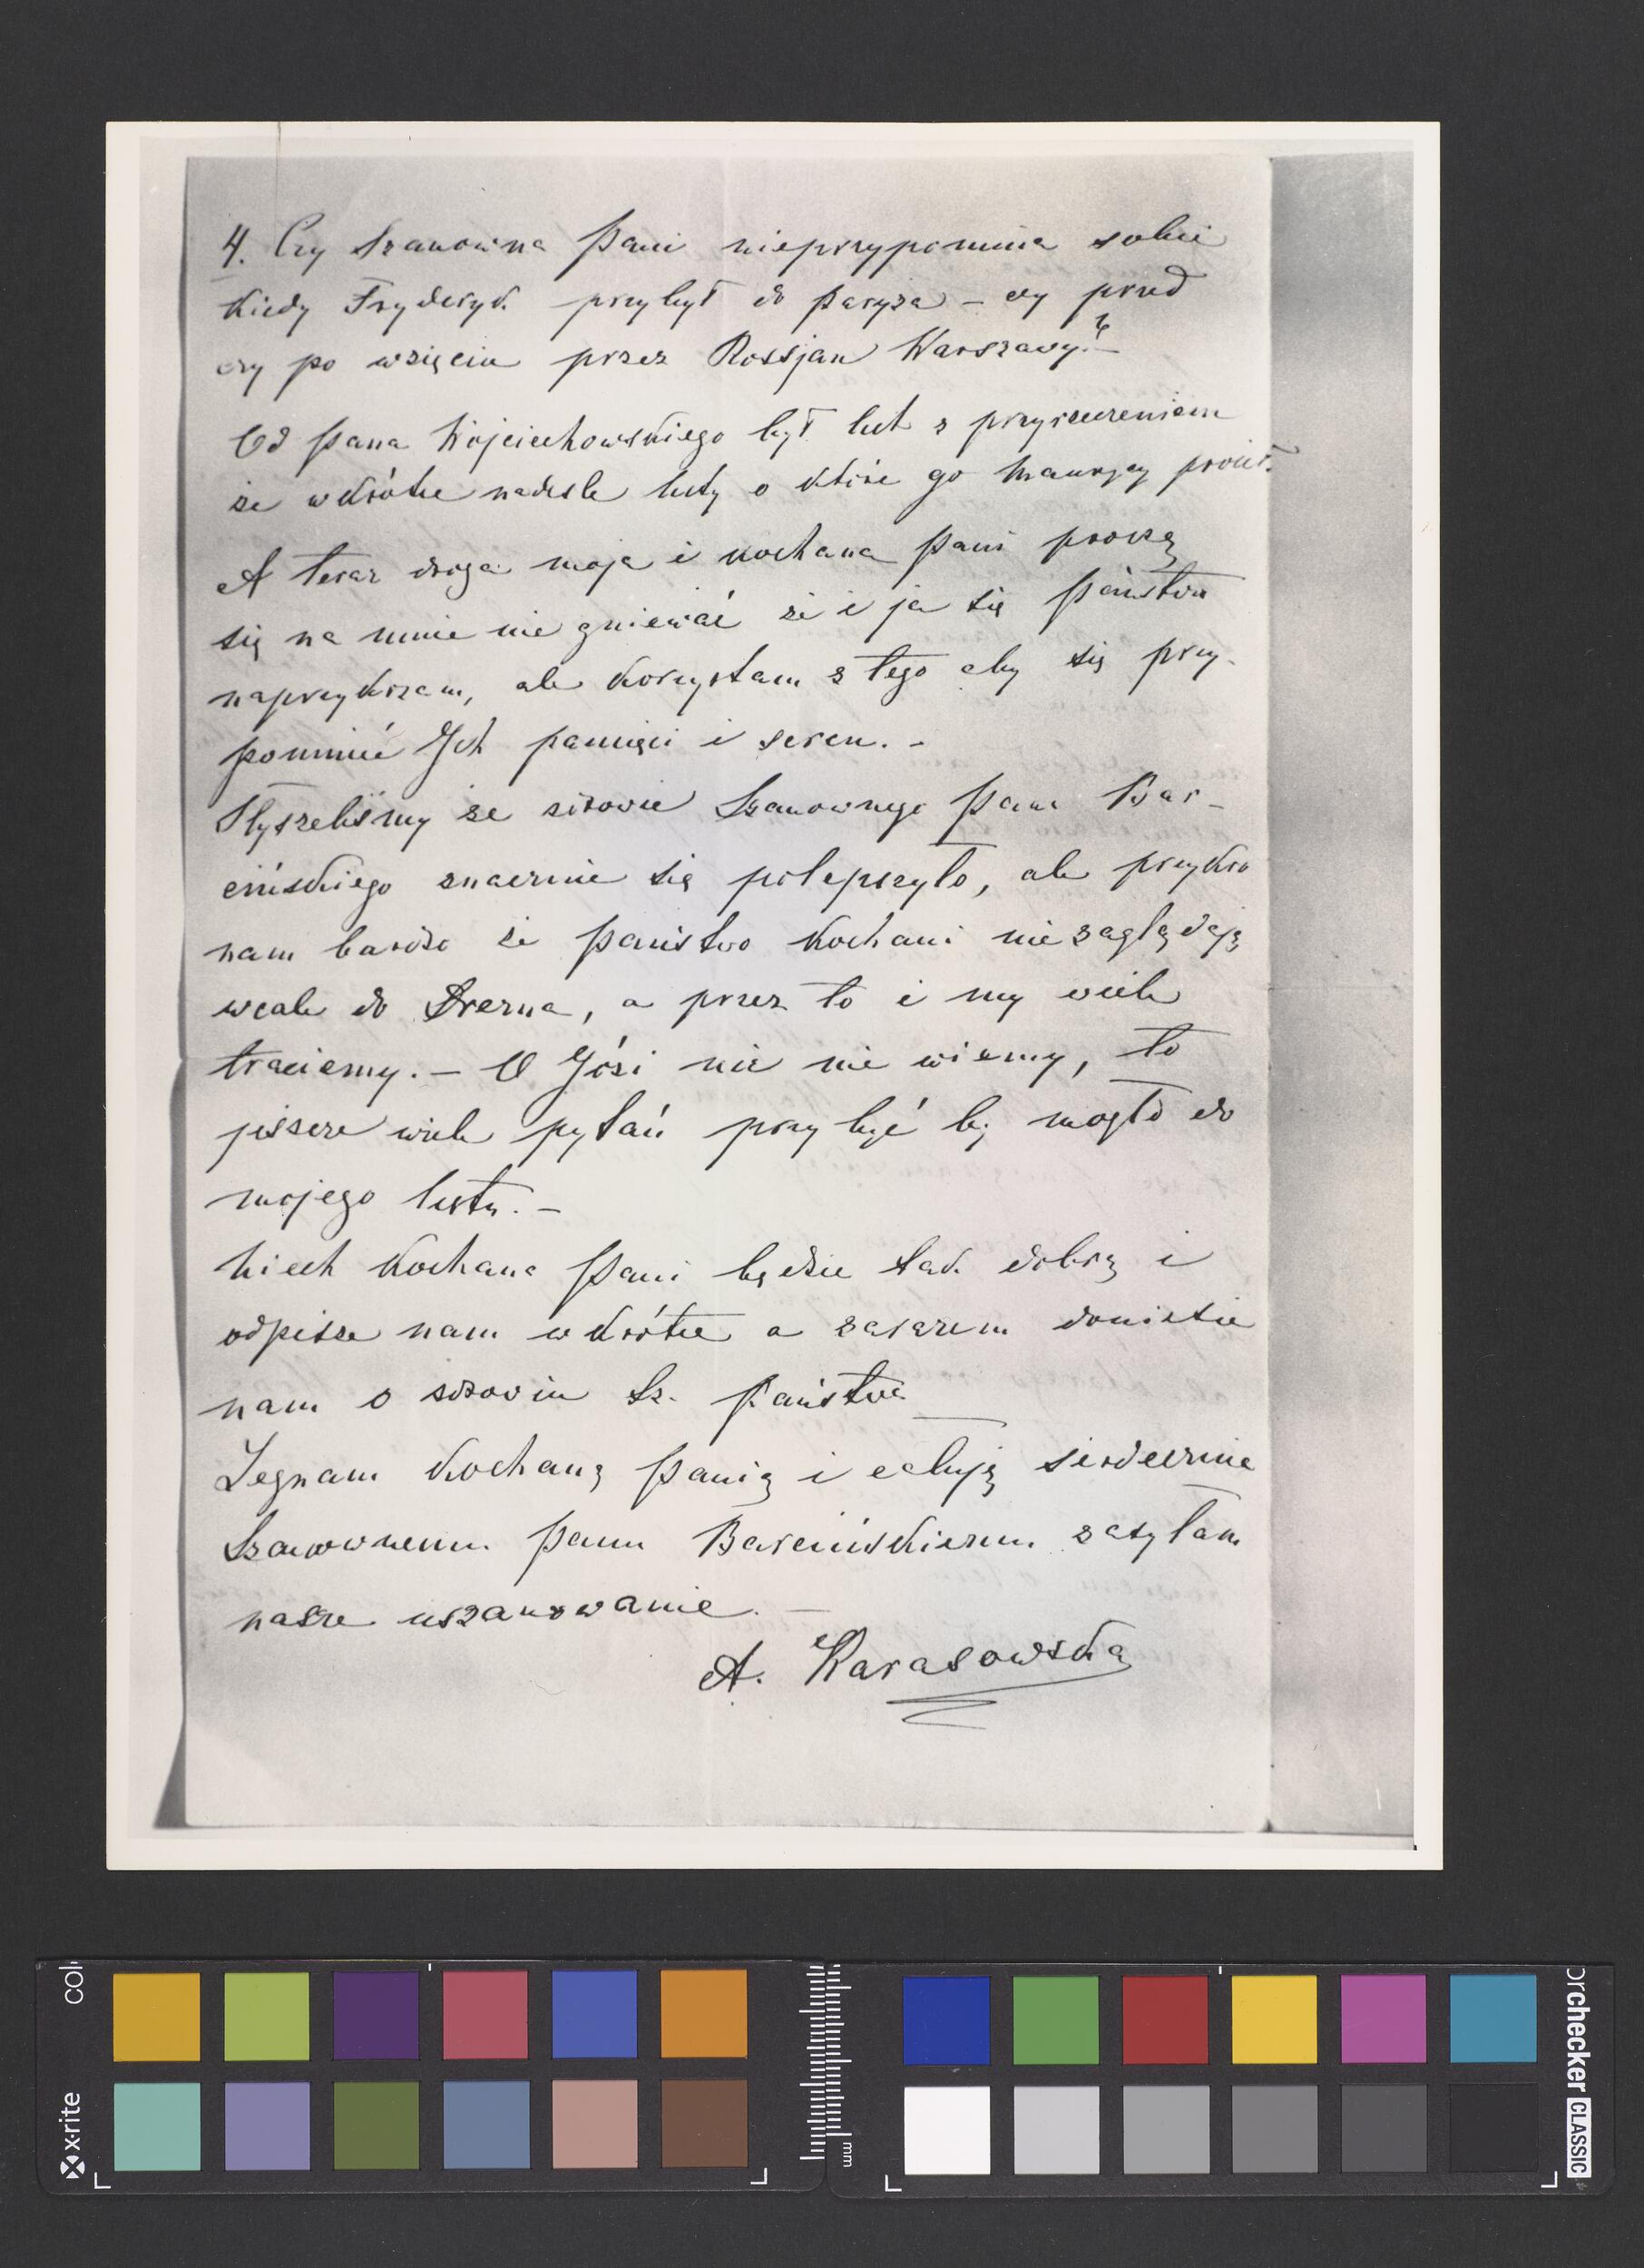 4. Czy Szanowna Pani nieprzypomina sobie
kiedy Fryderyk przybył do Paryża – czy przed
czy po wzięciu przez Rossjan Warszawy? –
Od Pana Wojciechowskiego był list z przyrzeczeniem
że wkrótce nadeśle listy o które go Maurycy prosił.
A teraz droga moja i kochana Pani proszę
się na mnie nie gniewać że i ja się Państwu
naprzykrzam, ale korzystam z tego aby się przy-
pomnieć Ich pamięci i sercu. –
Słyszeliśmy że zdrowie Szanownego Pana Bar-
cińskiego znacznie się polepszyło, ale przykro
nam bardzo że Państwo kochani nie zaglądają
wcale do Drezna, a przez to i my wiele
traciemy. – O Józi nic nie wiemy, to
jeszcze wiele pytań przybyć by mogło do
mojego listu. –
Niech kochana Pani będzie tak dobrą i
odpisze nam wkrótce a zarazem doniesie
nam o zdrowiu Sz. Państwa
Żegnam kochaną Panią i całuję serdecznie
Szanownemu Panu Barcińskiemu zasyłam
nasze uszanowanie. –
A. Karasowska
x·rite
col
mm
orchecker CLASSIC